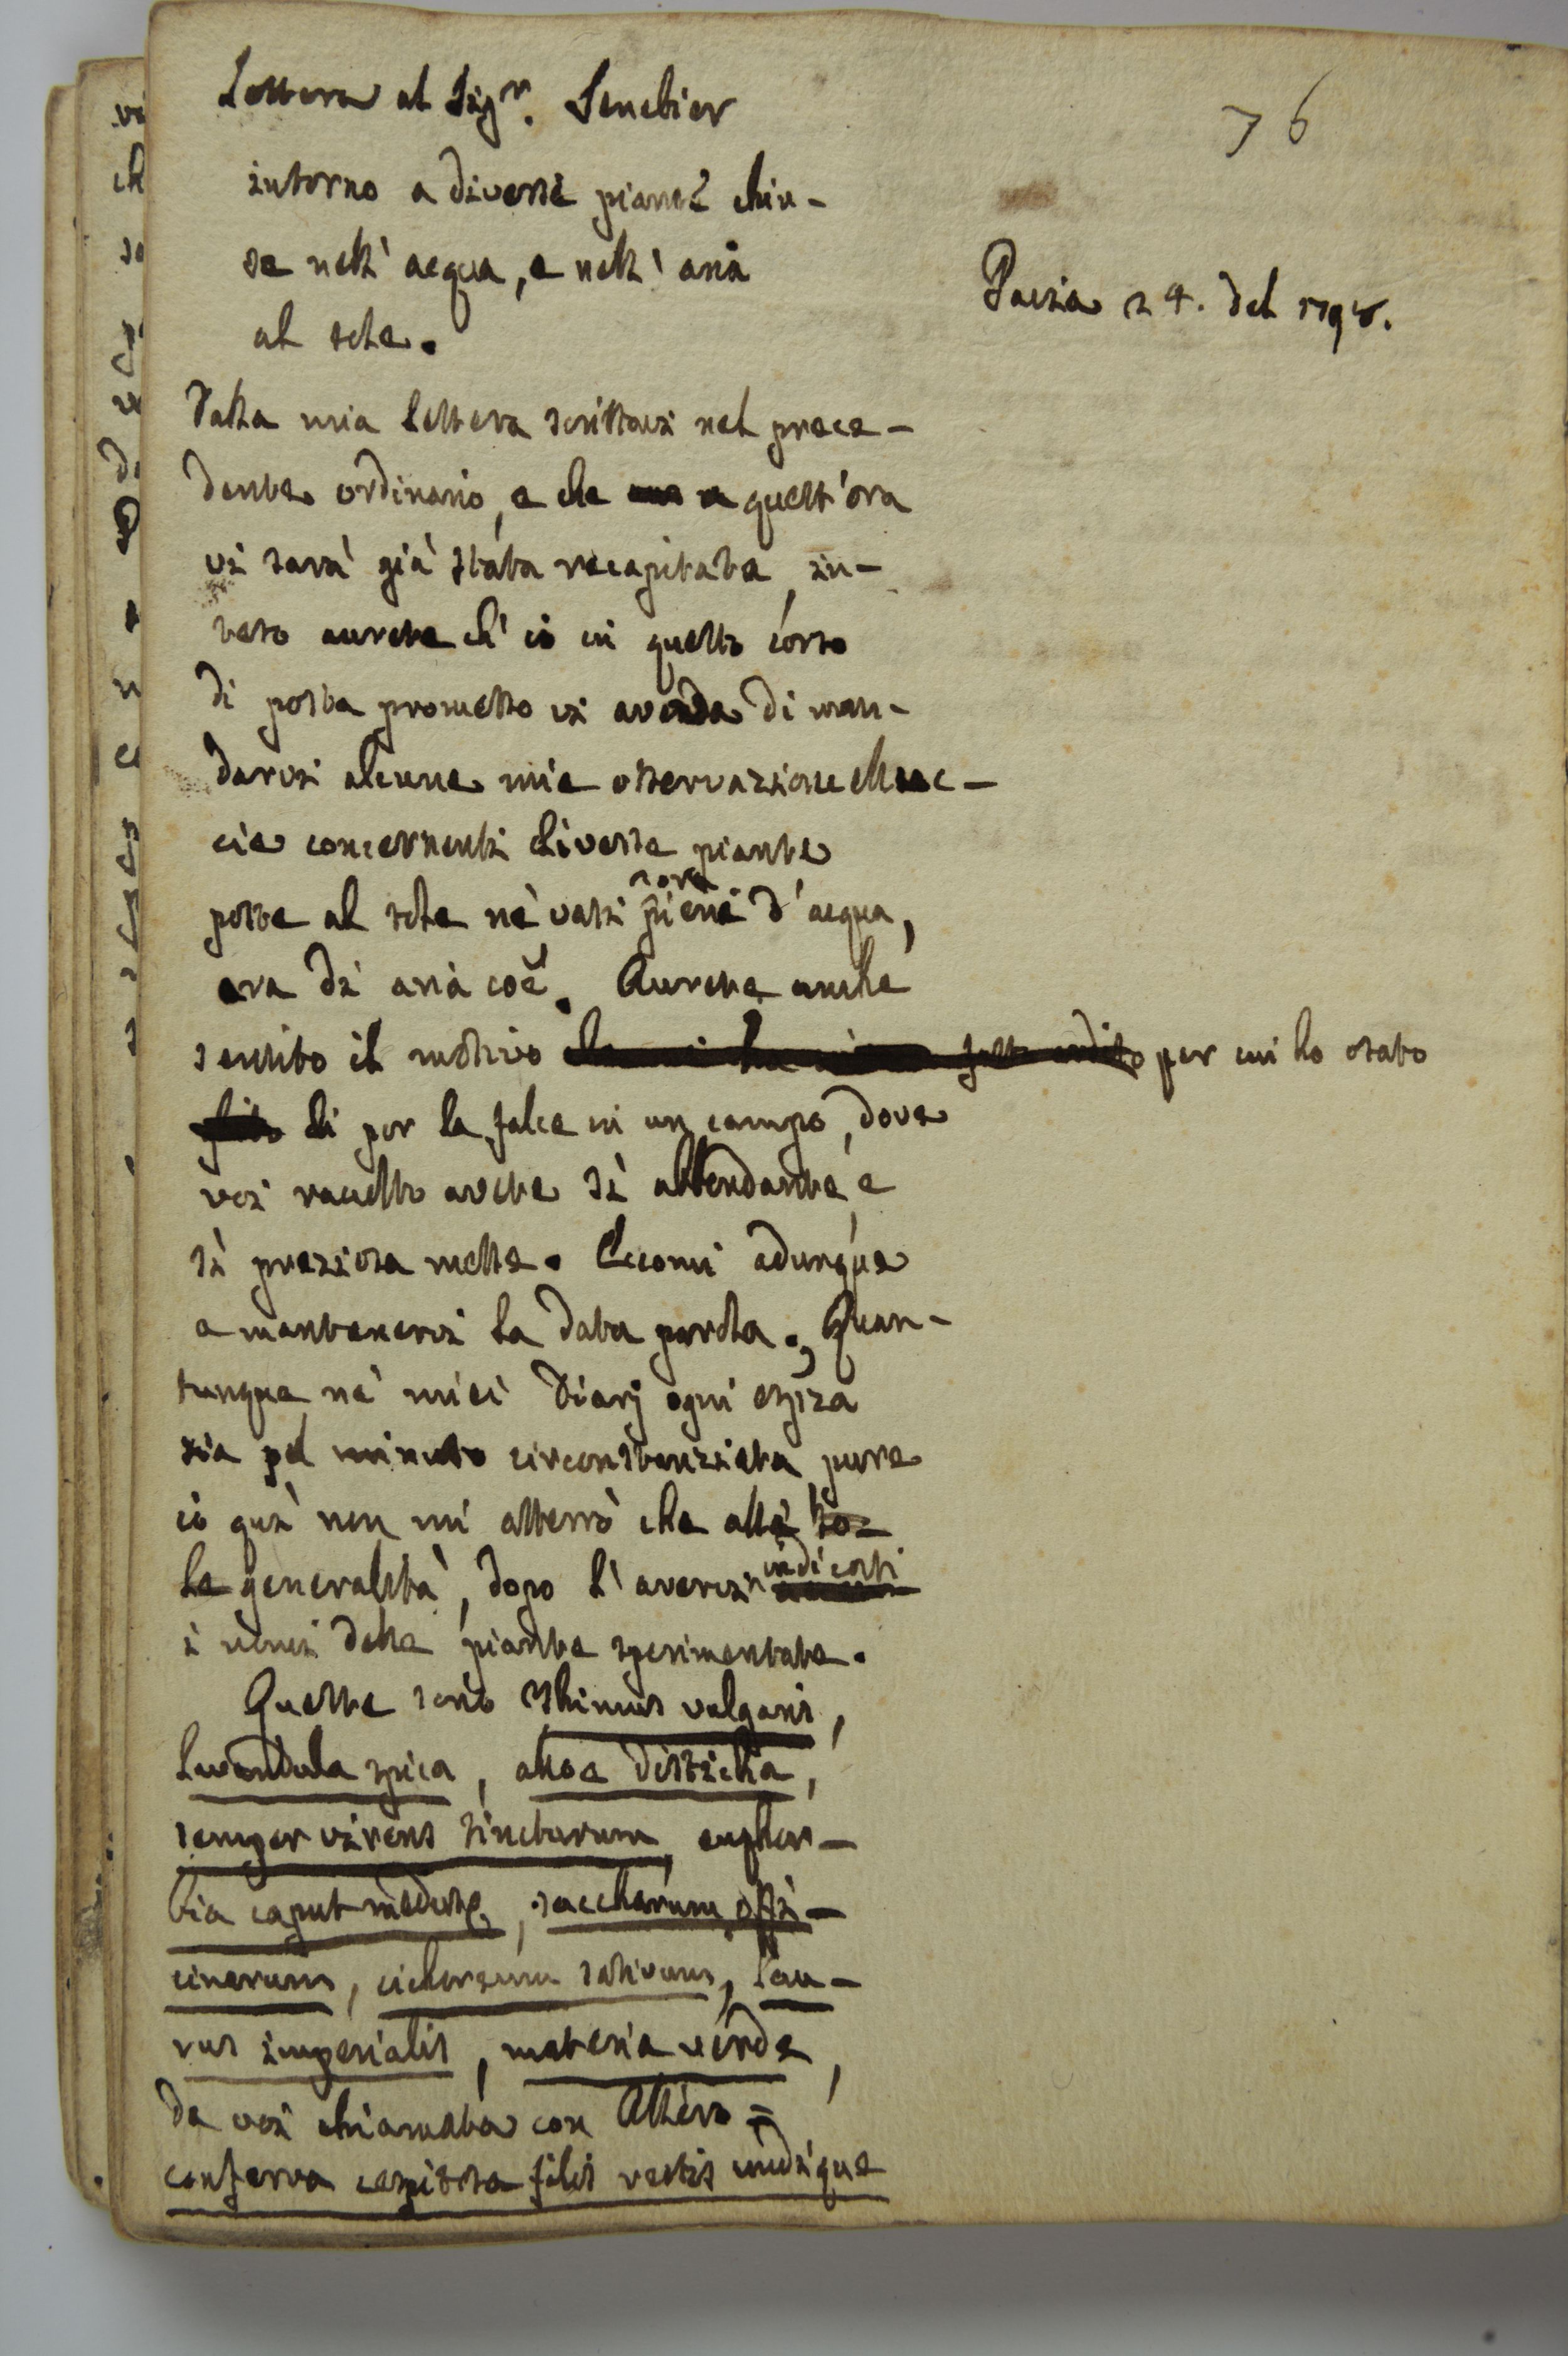 76
Lettera al Sigr. Senebier
intorno a diverse piante chiu-
se nell' acqua, e nell' aria
al sole.
Pavia 24. del 1798.
Dalla mia lettera scrittavi nel prece-
dente ordinario, e che a quest'ora
vi sarà già stata recapitata, in-
teso avrete ch' io in questo corso
di posta promesso vi aveva di man-
darvi alcune mie osservazioni
concernenti diverse piante
poste al sole ne' vasi ora pieni d' acqua,
ora di aria coe. Avrete anche
sentito il motivo per cui ho osato
di por la falce in un campo, dove
voi raccolto avete sì abbondante, e
sì preziosa messe. Eccomi adunque
a mantenervi la data parola. Quan-
tunque ne' miei Diarj ogni espza
sia pel minuto circonstanziata pure
io quì non mi atterrò che alle
generalità, dopo l' avervi indicati
i nomi delle piante sperimentate.
Queste sono Thimus vulgaris,
Lavandula spica, aloe disticha,
semper virens tinctorum, euphor-
bia caput medusę, saccharum offi-
cinarum, cichoreum sativum, lau-
rus imperialis, materia verde,
da voi chiamata con Allero =
conferva cespitosa filis rectis undique